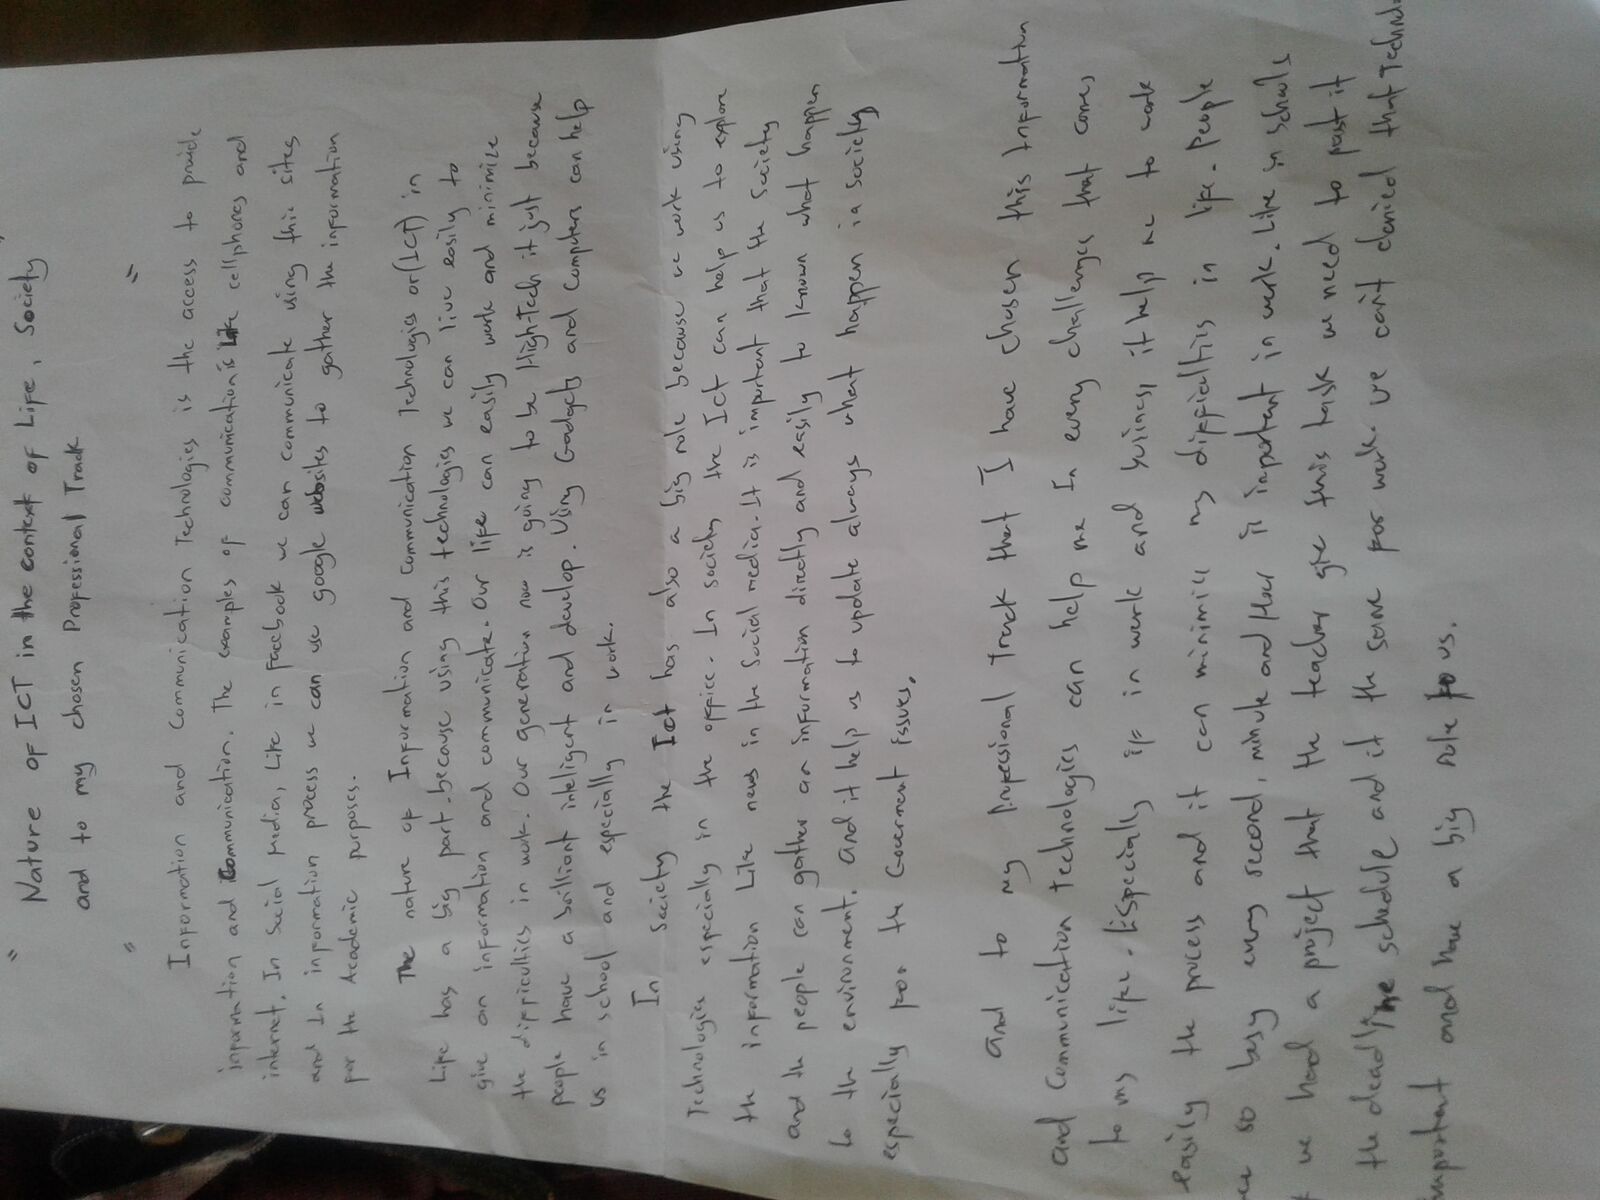 " Nature of ICT in the context of Life, Society
and to my chosen Professional Track "
Information and Communication Technologies is the access to provide
information and Communication. The examples of communication is like cellphones and
internet. In Social Media, Like in facebook we can communicate using this sites
and In information process we can use google websites to gather the information
for the Academic purposes.
The nature of Information and Communication Technologies or (ICT) in
Life has a big part because using this technologies we can live easily to
give an information and communicate. Our life can easily work and minimize
the difficulties in work. Our generation now is going to be High-Tech it just because
people have a brilliant inteligent and develop. Using Gadgets and Computers can help
us in school and especially in work.
In Society the Ict has also a big role because we work using
Technologies especially in the office. In society the Ict can help us to explore
the information Like news in the Social media. It is important that the Society
and the people can gather an information directly and easily to known what happen
to the environment. and it help us to update always what happen in a society
especially for the Goverment Issues.
and to my professional Track that I have chosen this Information
and Communication Technologies can help me In every challenges that comes
to my life. Especially if in work and it help me to work
easily the process and it can minimize my difficultis in life. People
so busy every second, minute and hour is important in work. Like in schools
we had a project that the teacher give this task we need to past it
the deadline schedule and it the same for work. we can't denied that
important and have a big role to us.